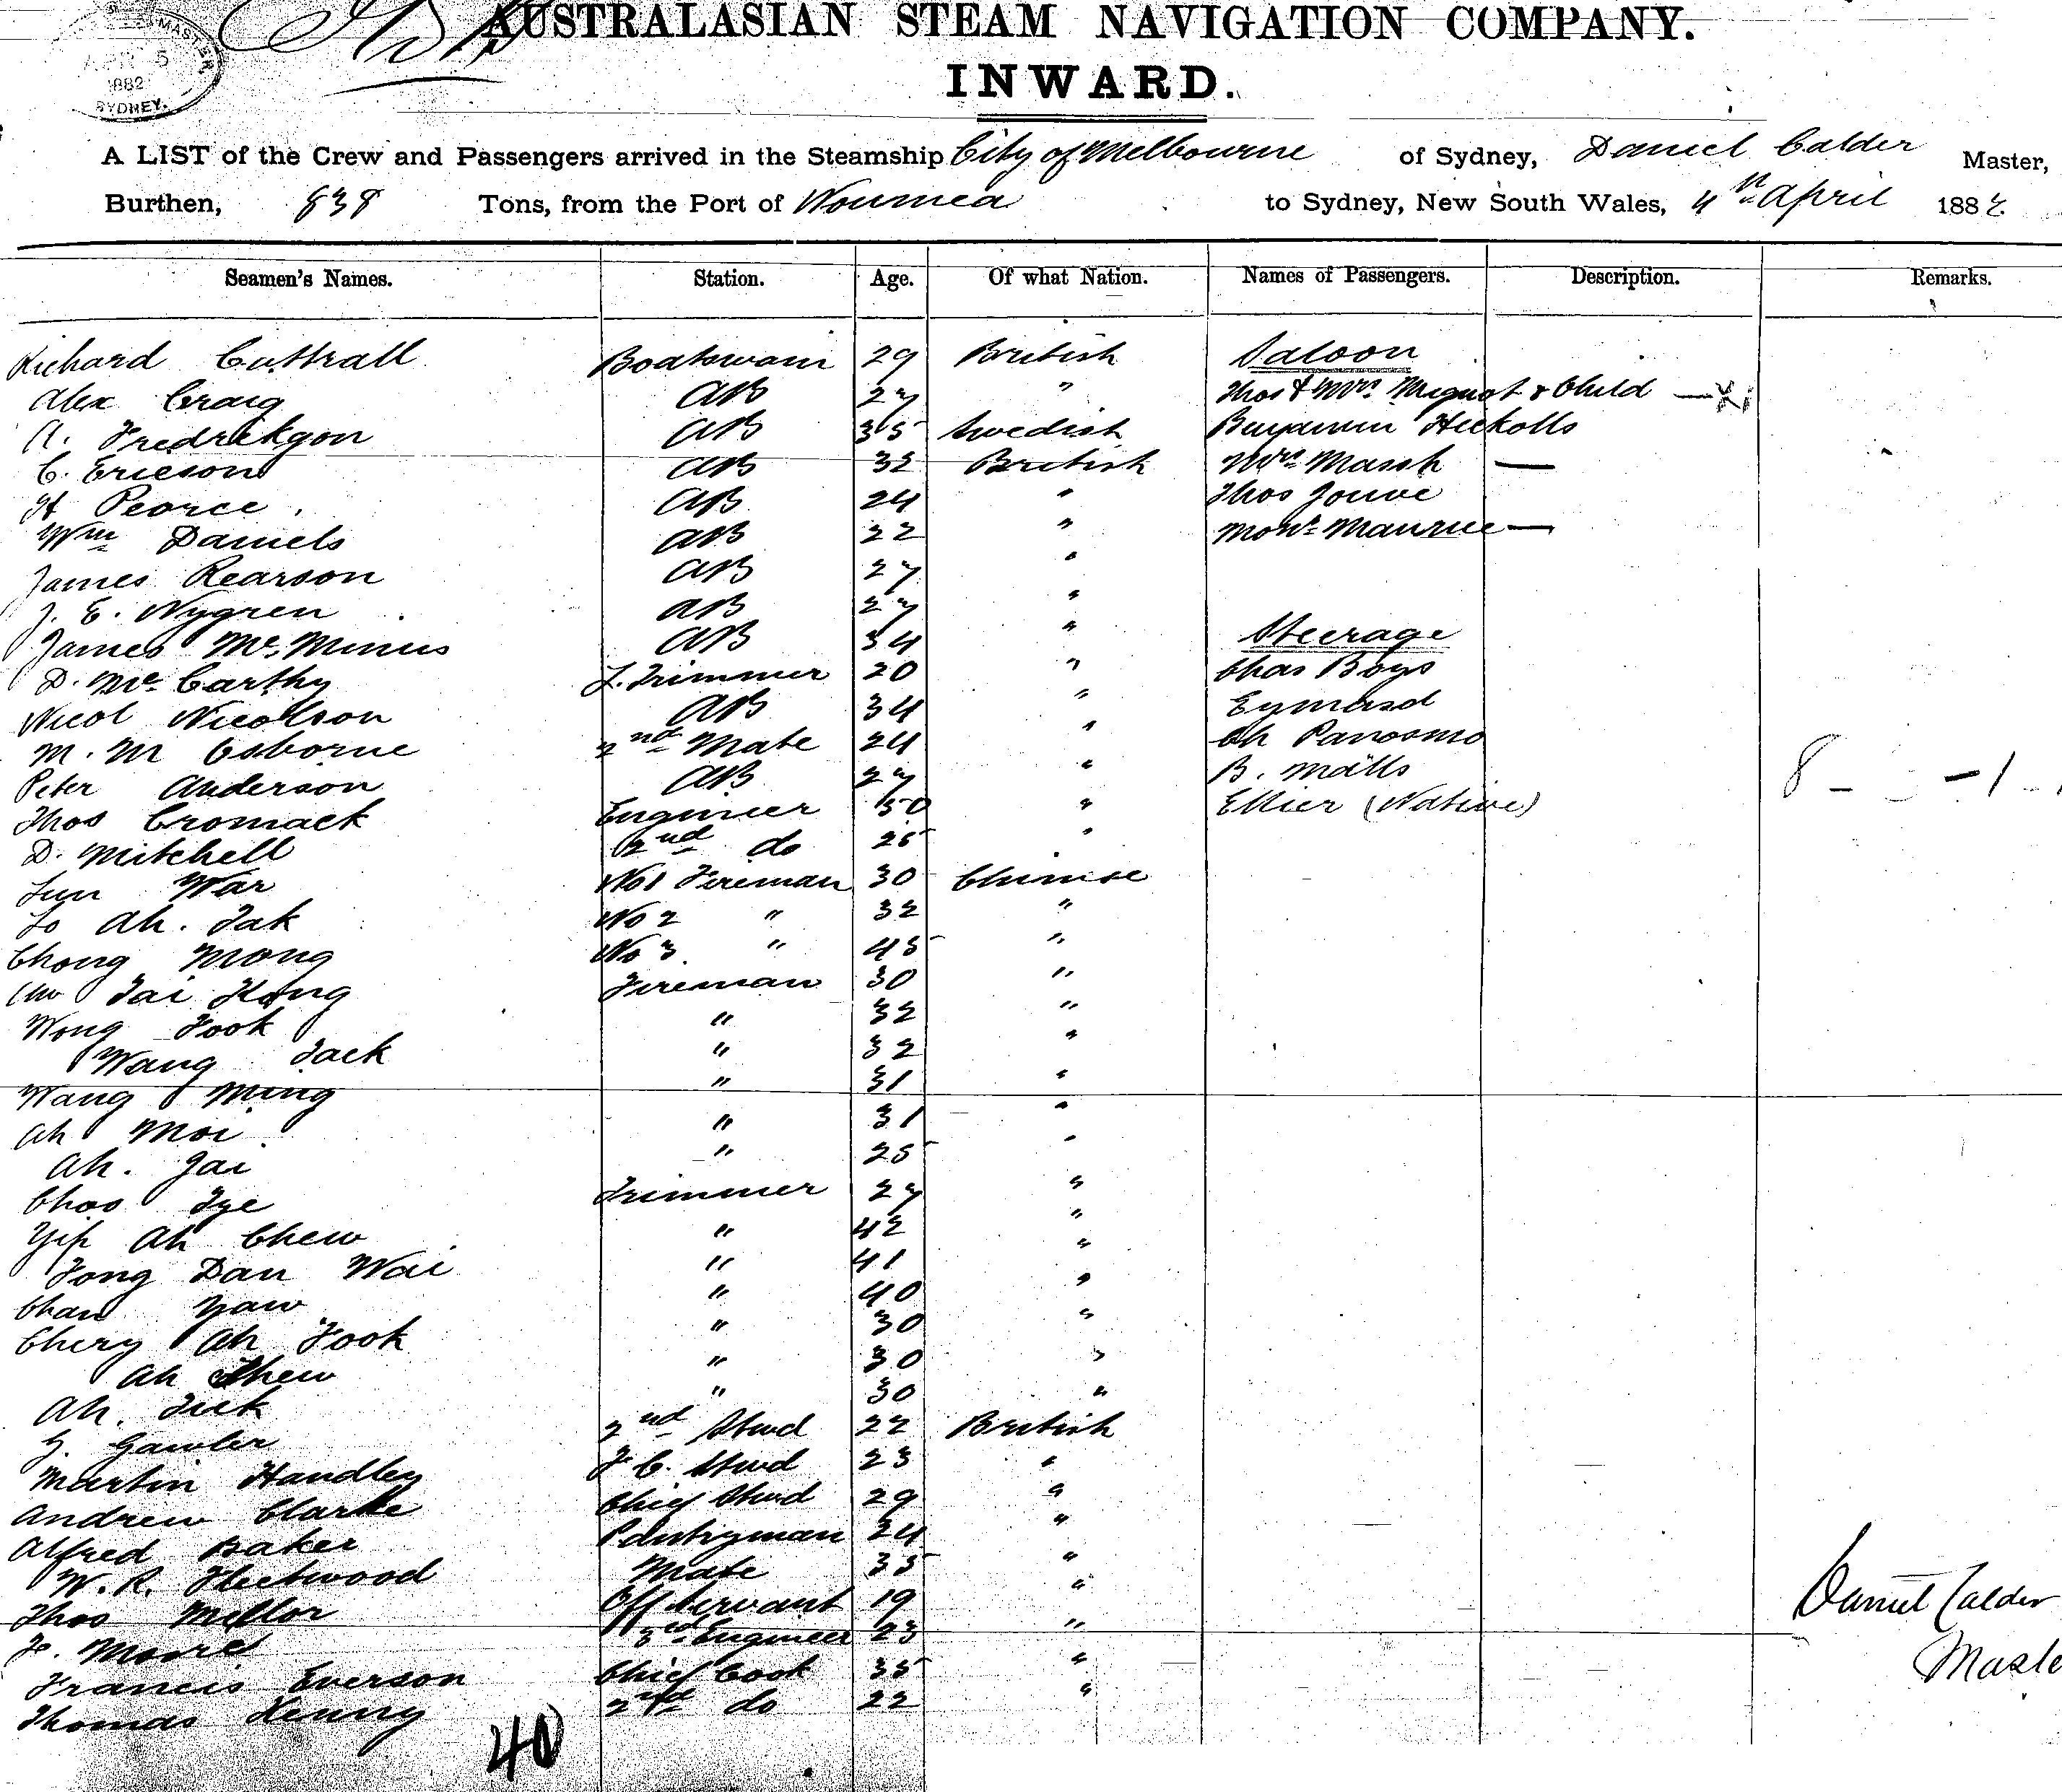 APR 5
1882
SYDNEY.
AUSTRALASIAN STEAM NAVIGATION COMPANY.
INWARD.
A LIST of the Crew and Passengers arrived in the Steamship City of Melbourne of Sydney, Daniel Calder Master,
Burthen, 838 Tons, from the Port of Noumea to Sydney, New South Wales, 4th April 1882
Seamen's Names. Station. Age. Of what Nation. Names of Passengers. Description. Remarks.
Richard Cuttrall Boatswain 29 British Saloon
Alex Craig AB 27 " Thos & Mrs. & Child
A. AB 35 Swedish Benjamin
C. Ericson AB 32 British Mrs. Marsh —
H Pearce AB 24 " Thos Jouve
Wm Daniels AB 22 " Mons. Maurice —
James Rearson AB 27 "
J. E. Nygren AB 27 "
James Mc. AB 34 " Steerage
D. Mc Carthy T. Trimmer 20 " Chas Boys
Nicol Nicolson AB 34 " Eymard
M. M Osborne 2nd Mate 24 " Ch
Peter Anderson AB 27 " B. Mills
Thos Cromack Engineer 50 " (Native)
D. Mitchell 2nd do 25 "
War No 1 Fireman 30 Chinise
Lo Ah. Tak No 2 " 32 "
Chong Mong No 3 " 45 "
Tai Kong Fireman 30 "
Wong Fook " 32 "
Wang Jack " 32 "
Wang Ming " 31 "
Ah Moi " 31 "
Ah. Jai " 25 "
Choo Trimmer 27 "
Yip Ah Chew " 42 "
Dan Wai " 41 "
Chan Yaw " 40 "
Ah Fook " 30 "
Ah " 30 "
Ah. " 30 "
2nd Stwd 22 British
Martin Handley F. C. Stwd 23 "
Andrew Clarke Chief Stwd 29 "
Alfred Baker Pantryman 24 "
W. R. Fleetwood Mate 35 "
Thos Mellor Off Servant 19 "
Moore 3rd Engineer 23 "
Francis Everson Chief Cook 35 "
Thomas Kenny 2nd do 22 "
8 — — 1
Daniel Calder
Maste
40